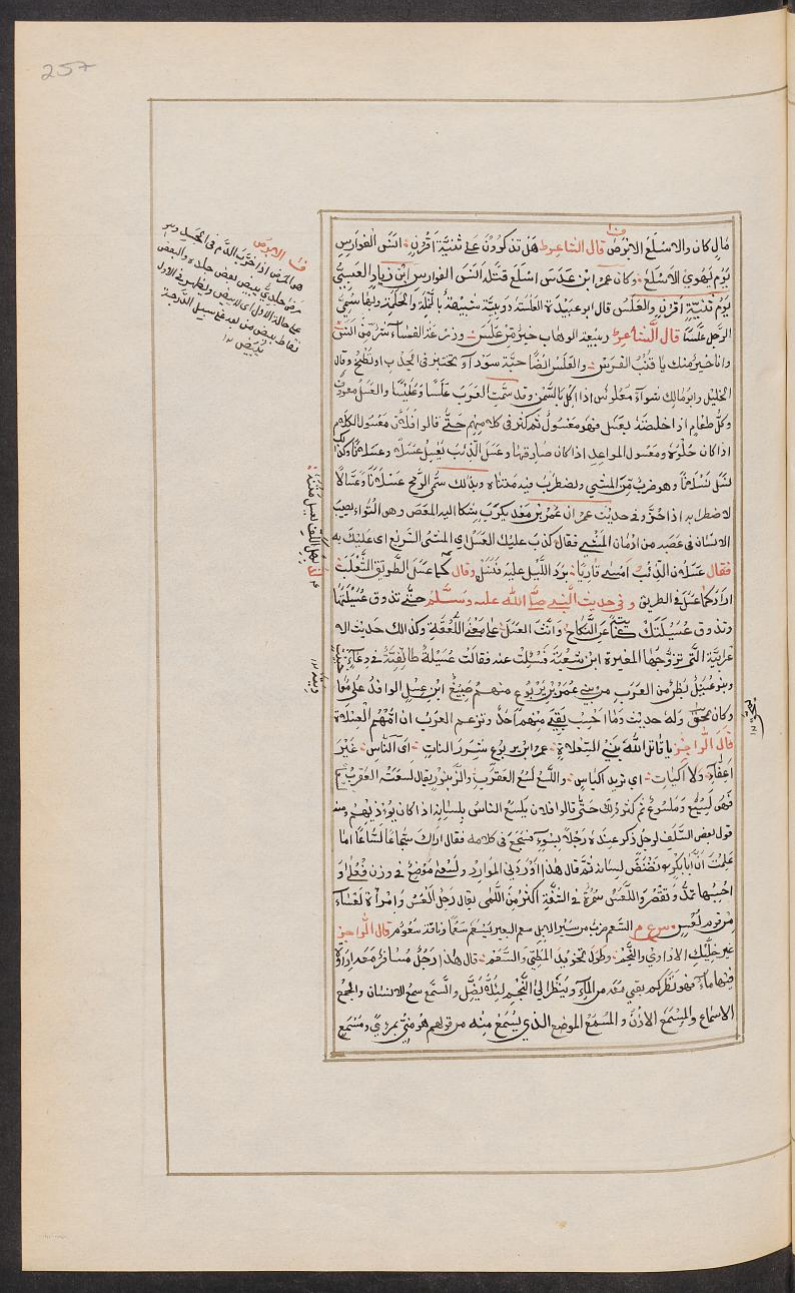 257
مال كان والاسلع الابرص قال الشاعر هل تذكرون على ثنية اقرن انس الفوارس
يوم يهوي الاسلع وكان عمرو ابن عدس اسلع قتله انس الفوارس ابن زياد العبسي
يوم ثنية اقرن والعلس قال ابو عبيدة العلسة دويبة شبيهة بالنملة والحلمة وبها سمي
الرجل علسا قال الشاعر وربيعة الوهاب خير من علس وزرعة الفساء شر من انس
وانا خير منك يا قنب الفرس والعلس ايضا حبة سوداء تختبز في الجدب او تطبخ وقال
الخليل وابو مالك شواء معلوس اذا اكل بالسمن وقد سمت العرب علسا وعليسا والعسل معروف
وكل طعام اذا خلصته بعسل فهو معسول ثم كثر في كلامهم حتى قالوا فلان معسول الكلام
اذا كان حلوه ومعسول المواعيد اذا كان صادقها وعسل الذئب يعسل عسلا وعسلانا وكذلك
نسل نسلانا وهو ضرب من المشي ويضطرب فيه متناه وبذلك سمي الرمح عسلانا وعسالا
لاضطرابه اذا هز وفي حديث عمر ان عمرو بن معد يكرب شكا اليه المعص وهو التواء يصيب
الانسان في عصبه من ادمان المشي فقال كذب عليك العسل اي المشي السريع اي عليك به
فقال عسلان الذئب امسى قاربا برد الليل عليه فنسل وقال كما عسل الطريق الثعلب
اراد كما عسل في الطريق وفي حديث النبي صلى الله عليه وسلم حتى تذوق عسيلتها
وتذوق عسيلتك كناية عن النكاح وانث العسل على معنى اللعقة وكذالك حديث الا
عرابية التي تزوجها المغيرة ابن شعبة فسئلت عنه فقالت عسيلة طائفية في
وبنو عسل بطن من العرب من بني عمرو بن يربوع منهم صبيغ ابن عسل الوافد على معا
وكان يحمق وله حديث وما احسب بقي منهم احد وتزعم العرب ان امهم السعلاة
قال الراجز يا قاتل الله بني السعلاة عمرو ابن يربوع شرار النات اي الناس غير
اعفاء ولا اكيات اي يريد اكياس واللسع لسع العقرب والزنبور يقال لسعته العقرب
فهو لسيع وملسوع ثم كثر ذلك حتى قالوا فلان يلسع الناس بلسانه اذا كان يؤذيهم ومنه
قول بعض السلف لرجل ذكر عنده رجلا بسوء فسجع في كلامه فقال اراك سجاعا لساعا اما
علمت ان ابا بكر نضنض لسانه ثم قال هذا اوردني الموارد ولسعى موضع في وزن فعلى و
احسبها تمد وتقصر واللعس سمرة في الشفة اكثر من اللمى يقال رجل العس وامرأة لعساء
من قوم لعس س ع م السعم ضرب من سير الابل سعم البعير يسعم سعما وناقة سعوم قال الراجز
غير خليليك الاداوى والنجم وطول تخويد المطي والسعم قال هذا رجل مسافر معه اداوة
فيها ماء فهو ينظر كم بقي معه من الماء وينظر الى النجم لئلا يضل والسمع سمع الانسان والجمع
الاسماع والمسمع الاذن والمسمع الموضع الذي يسمع منه من قولهم هو مني بمرءي ومسمع
ف الابرص
هو المرض اذا خرب الدم في الجسد وهو
مرض جلدي يبيض بعض جلده والبعض
على حاله الاول اي الابيض ويظهر في الاول
نقاط بيض من بعد في سبيل التدريجة
يبيض